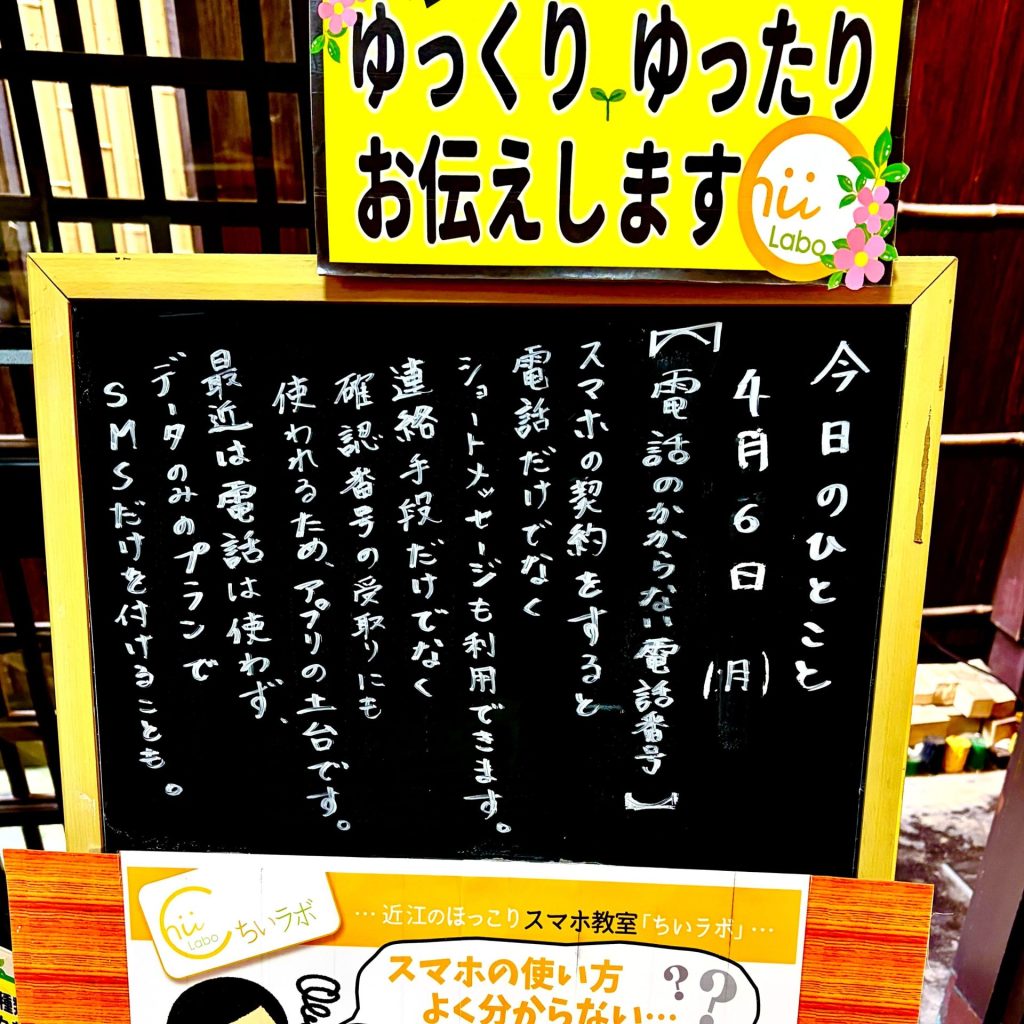 ゆっくり ゆったり
お伝えします
hii
Labo
今日のひとこと
4月6日(月)
【電話のかからない電話番号】
スマホの契約をすると
電話だけでなく
ショートメッセージも利用できます。
連絡手段だけでなく
確認番号の受取りにも
使われるため、アプリの土台です。
最近は電話は使わず、
データのみのプランで
SMSだけを付けることも。
Chii
Labo
ちいラボ
…近江のほっこりスマホ教室「ちいラボ」…
スマホの使い方
よく分からない…
??